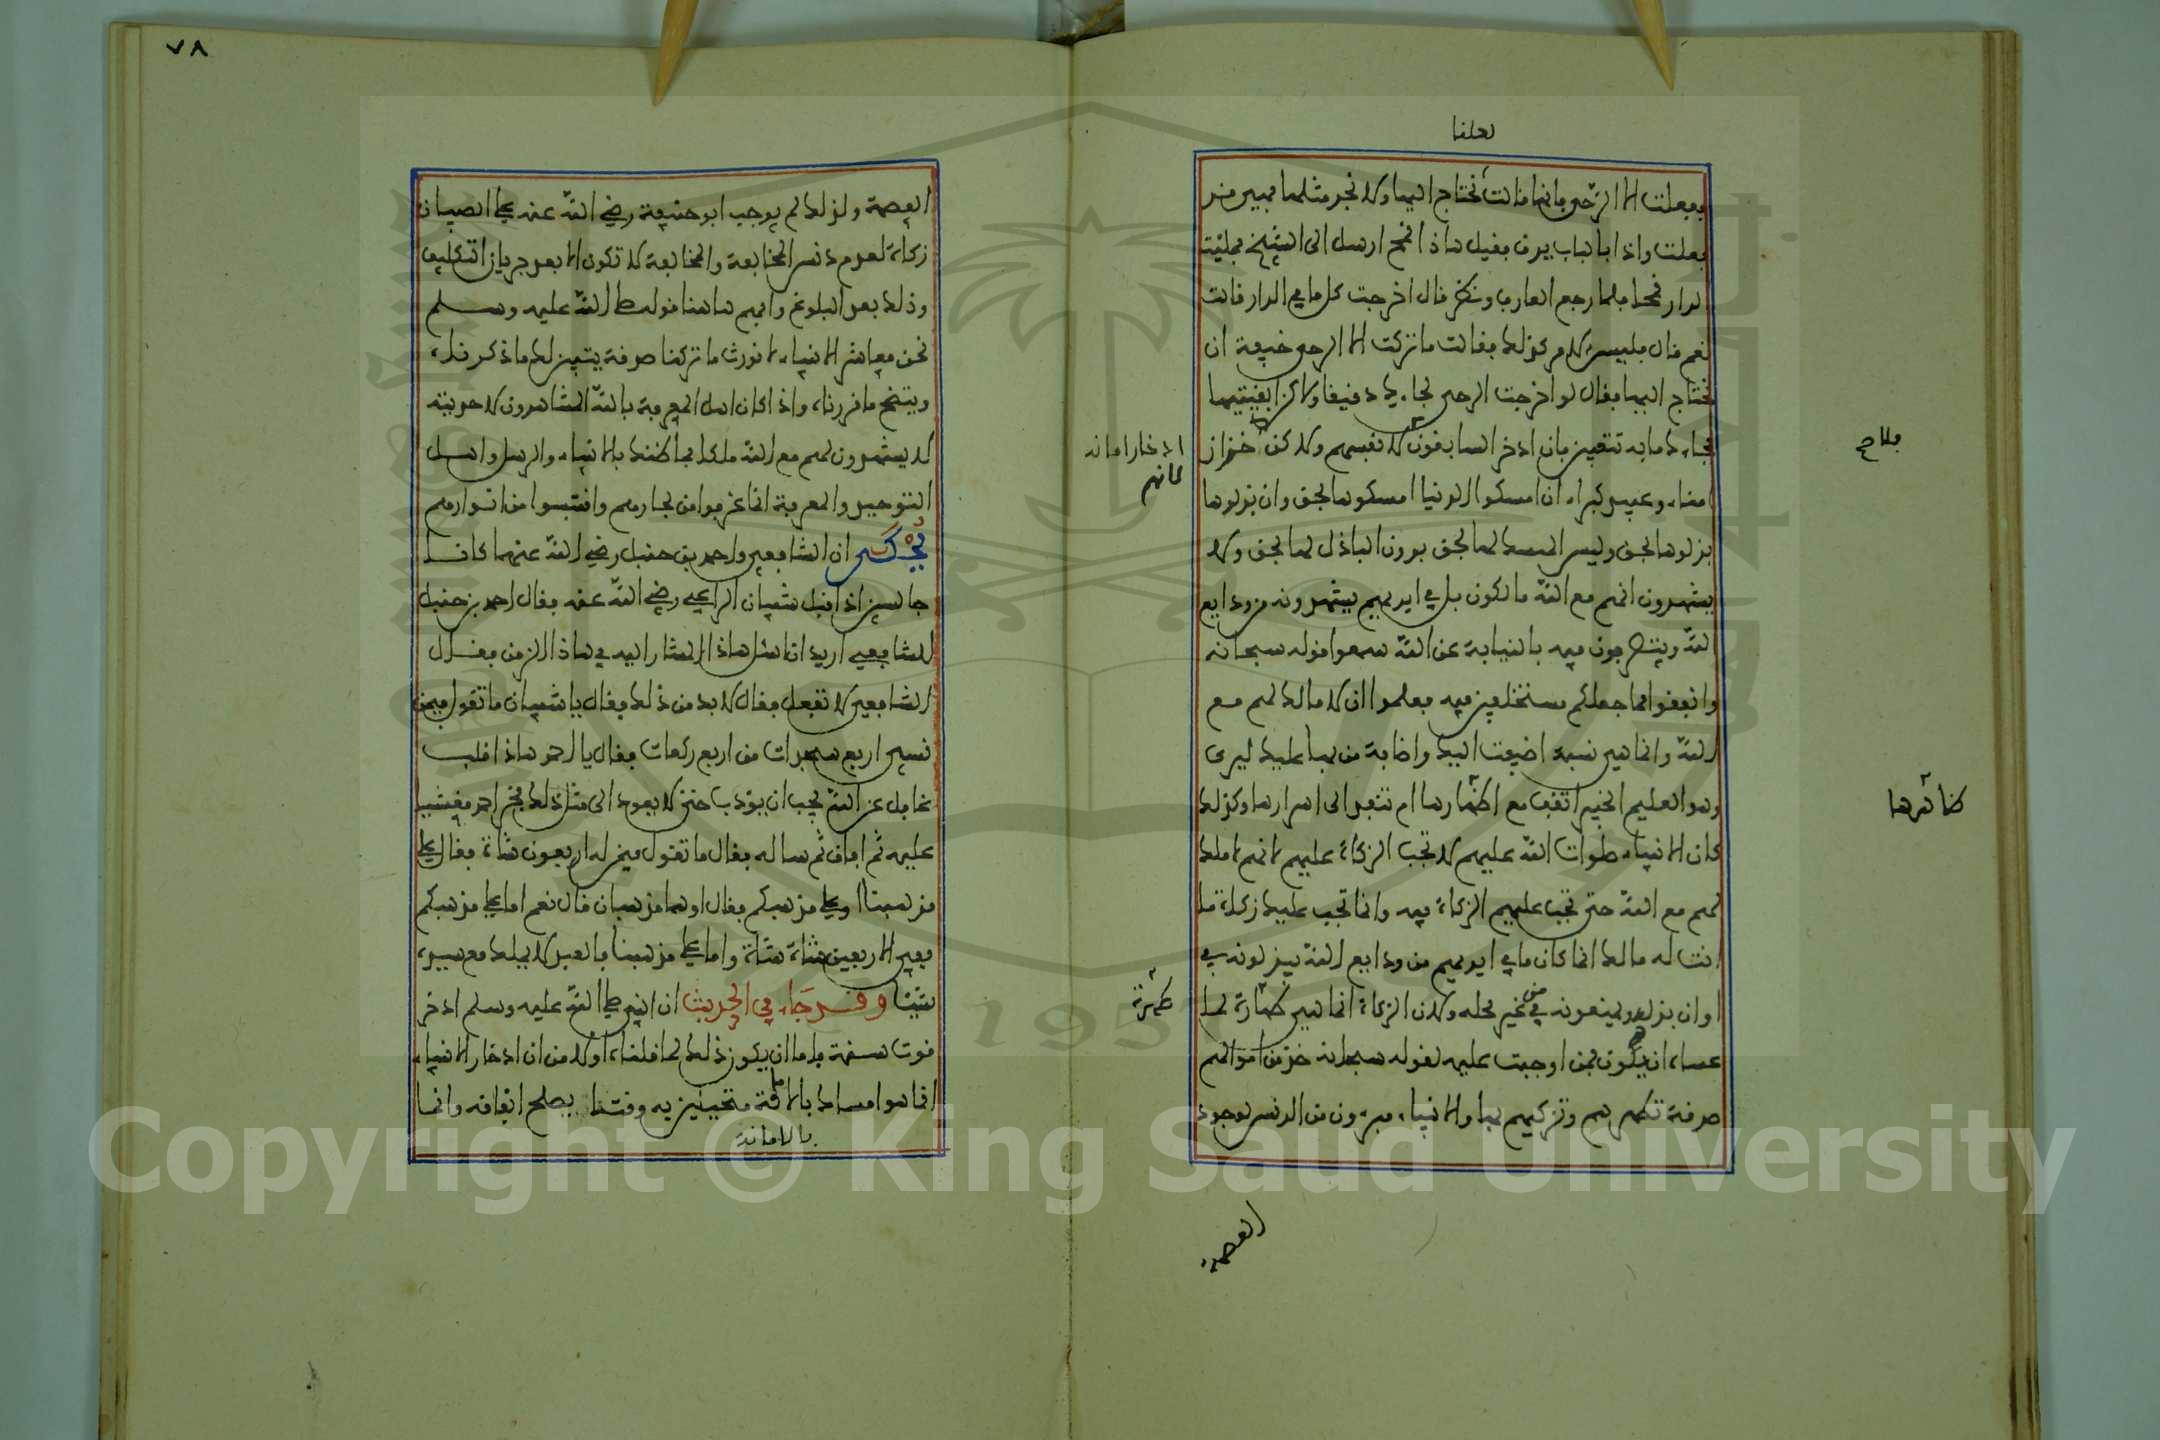 لعلنا
ففعلت الا الرحى فانها قالت نحتاج اليها ولا نجد مثلها فبين من
فعلت واذا بالباب يدق فقيل هاذا قمح ارسل الى الشيخ فمليت
الدار قمحا فلما رجع العارف ونظر قال اخرجت كل ما في الدار قالت
نعم قال فليس الامر كذلك فقالت ما تركت الا الرحى خيفة ان
نحتاج اليها فقال لو اخرجت الرحى لجاءك دقيقا ولاكن ابقيتيها
فجاءك ما به تتعبين فان ادخر السابقون لا لنفسهم ولاكن خزان
امناء وعبيد كبراء ان امسكوا الدنيا امسكوها لحق وان بذلوها
بذلوها لحق وليس الممسك لها لحق بدون الباذل لها لحق ولا
يشهدون انهم مع الله مالكون بل في ايديهم يشهدونه من ودايع
الله ويتصرفون فيه بالنيابة عن الله سمعوا قوله سبحانه
وانفقوا مما جعلكم مستخلفين فيه فعلموا ان لا مالك لهم مع
الله وانما هي نسبة اضيفت اليك واضافة من بها عليك ليرى
وهو العليم الخبير اتقف مع اظهارها ام تنفد الى اسرارها وكذلك
كان الانبياء صلوات الله عليهم لا تجب الزكاة عليهم لانهم لا ملك
لهم مع الله حتى تجب عليهم الزكاة فيه وانما تجب عليك زكاة ما
انت له مالك انما كان ما في ايديهم من ودايع الله يبذلونه في
اوان بذله ويمنعونه من غير محله ولان الزكاة انما هي طهارة لما
عساه ان يكون ممن اوجبت عليه لقوله سبحانه خذ من اموالهم
صدقة تطهرهم وتزكيهم بها والانبياء مبرءون من الدنس لوجود
ادخار امانه
لانهم
فلاح
ظاهرها
طهرة
العصمة
٧٨
العصمة ولذلك لم يوجب ابو حنيفة رضي الله عنه على الصبيان
زكاة لعدم دنس المخالفة والمخالفة لا تكون الا بعد جريان التكليف
وذلك بعد البلوغ وافهم هاهنا قوله صلى الله عليه وسلم
نحن معاشر الانبياء لا نورث ما تركنا صدقة يتبين لك ما ذكرناه
ويتضح ما قررناه واذا كان اهل المعرفة بالله المشاهدون لاحديته
لا يشهدون لهم مع الله ملكا فما ظنك بالانبياء والرسل واهل
التوحيد والمعرفة انما غرفوا من بحارهم واقتبسوا من انوارهم
يحكى ان الشافعي واحمد بن حنبل رضي الله عنهما كانا
جالسين اذ اقبل شيبان الراعي رضي الله عنه فقال احمد بن حنبل
للشافعي اريد ان اسئل هاذا المشار اليه في هاذا الزمن فقال
الشافعي لا تفعل فقال لا بد من ذلك فقال يا شيبان ما تقول فيمن
نسي اربع سجدات من اربع ركعات فقال يا احمد هاذا قلب
غافل عن الله يجب ان يؤدب حتى لا يعود الى مثل ذلك فخر احمد مغشيا
عليه ثم افاق ثم ساله فقال ما تقول فيمن له اربعون شاة فقال على
مذهبنا او على مذهبكم فقال اوهما مذهبان قال نعم اما على مذهبكم
ففي الاربعين شاة شاة واما على مذهبنا فالعبد لا يملك مع سيده
شيئا وقد جاء في الحديث ان النبي صلى الله عليه وسلم ادخر
قوت سنة فاما ان يكون ذلك لما قلناه اولا من ان ادخار الانبياء
انما هو امساك بالامانة متحينين به وقتا يصلح انفاقه وانما
بالامانة
Copyright © King Saud University
1957